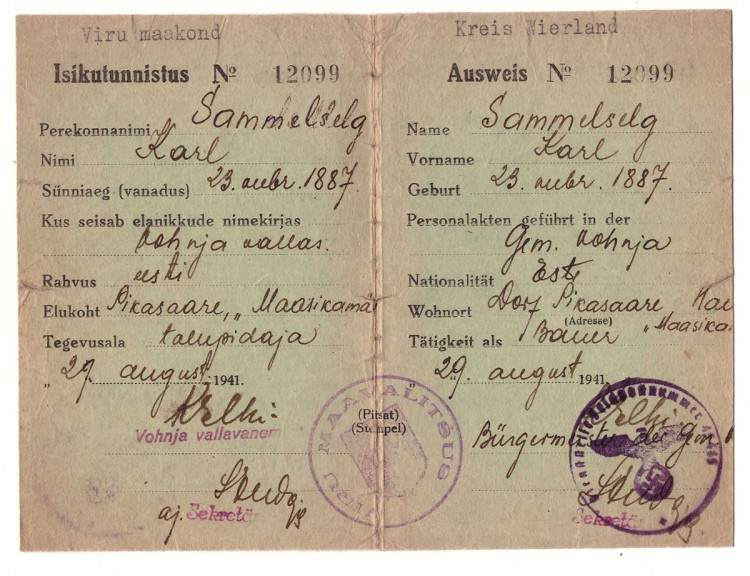 Viru maakond
Isikutunnistus № 12099
Perekonnanimi Sammelselg
Nimi Karl
Sünniaeg (vanadus) 23. nvbr. 1887.
Kus seisab elanikkude nimekirjas
Vohnja vallas.
Rahvus eesti
Elukoht Pikasaare, „Maasikamä
Tegevusala talupidaja
„29. august 1941.
Vohnja vallavanem
aj. Sekretär
(Pitsat)
(Stempel)
VIRU MAAVALITSUS
Kreis Wierland
Ausweis № 12099
Name Sammelselg
Vorname Karl
Geburt 23. nvbr. 1887.
Personalakten geführt in der
Gem. Vohnja
Nationalität Este
Wohnort Dorf Pikasaare
(Adresse)
Tätigkeit als Bauer „Maasika
„29. august 1941
Bürgermeister der Gem
Sekretär